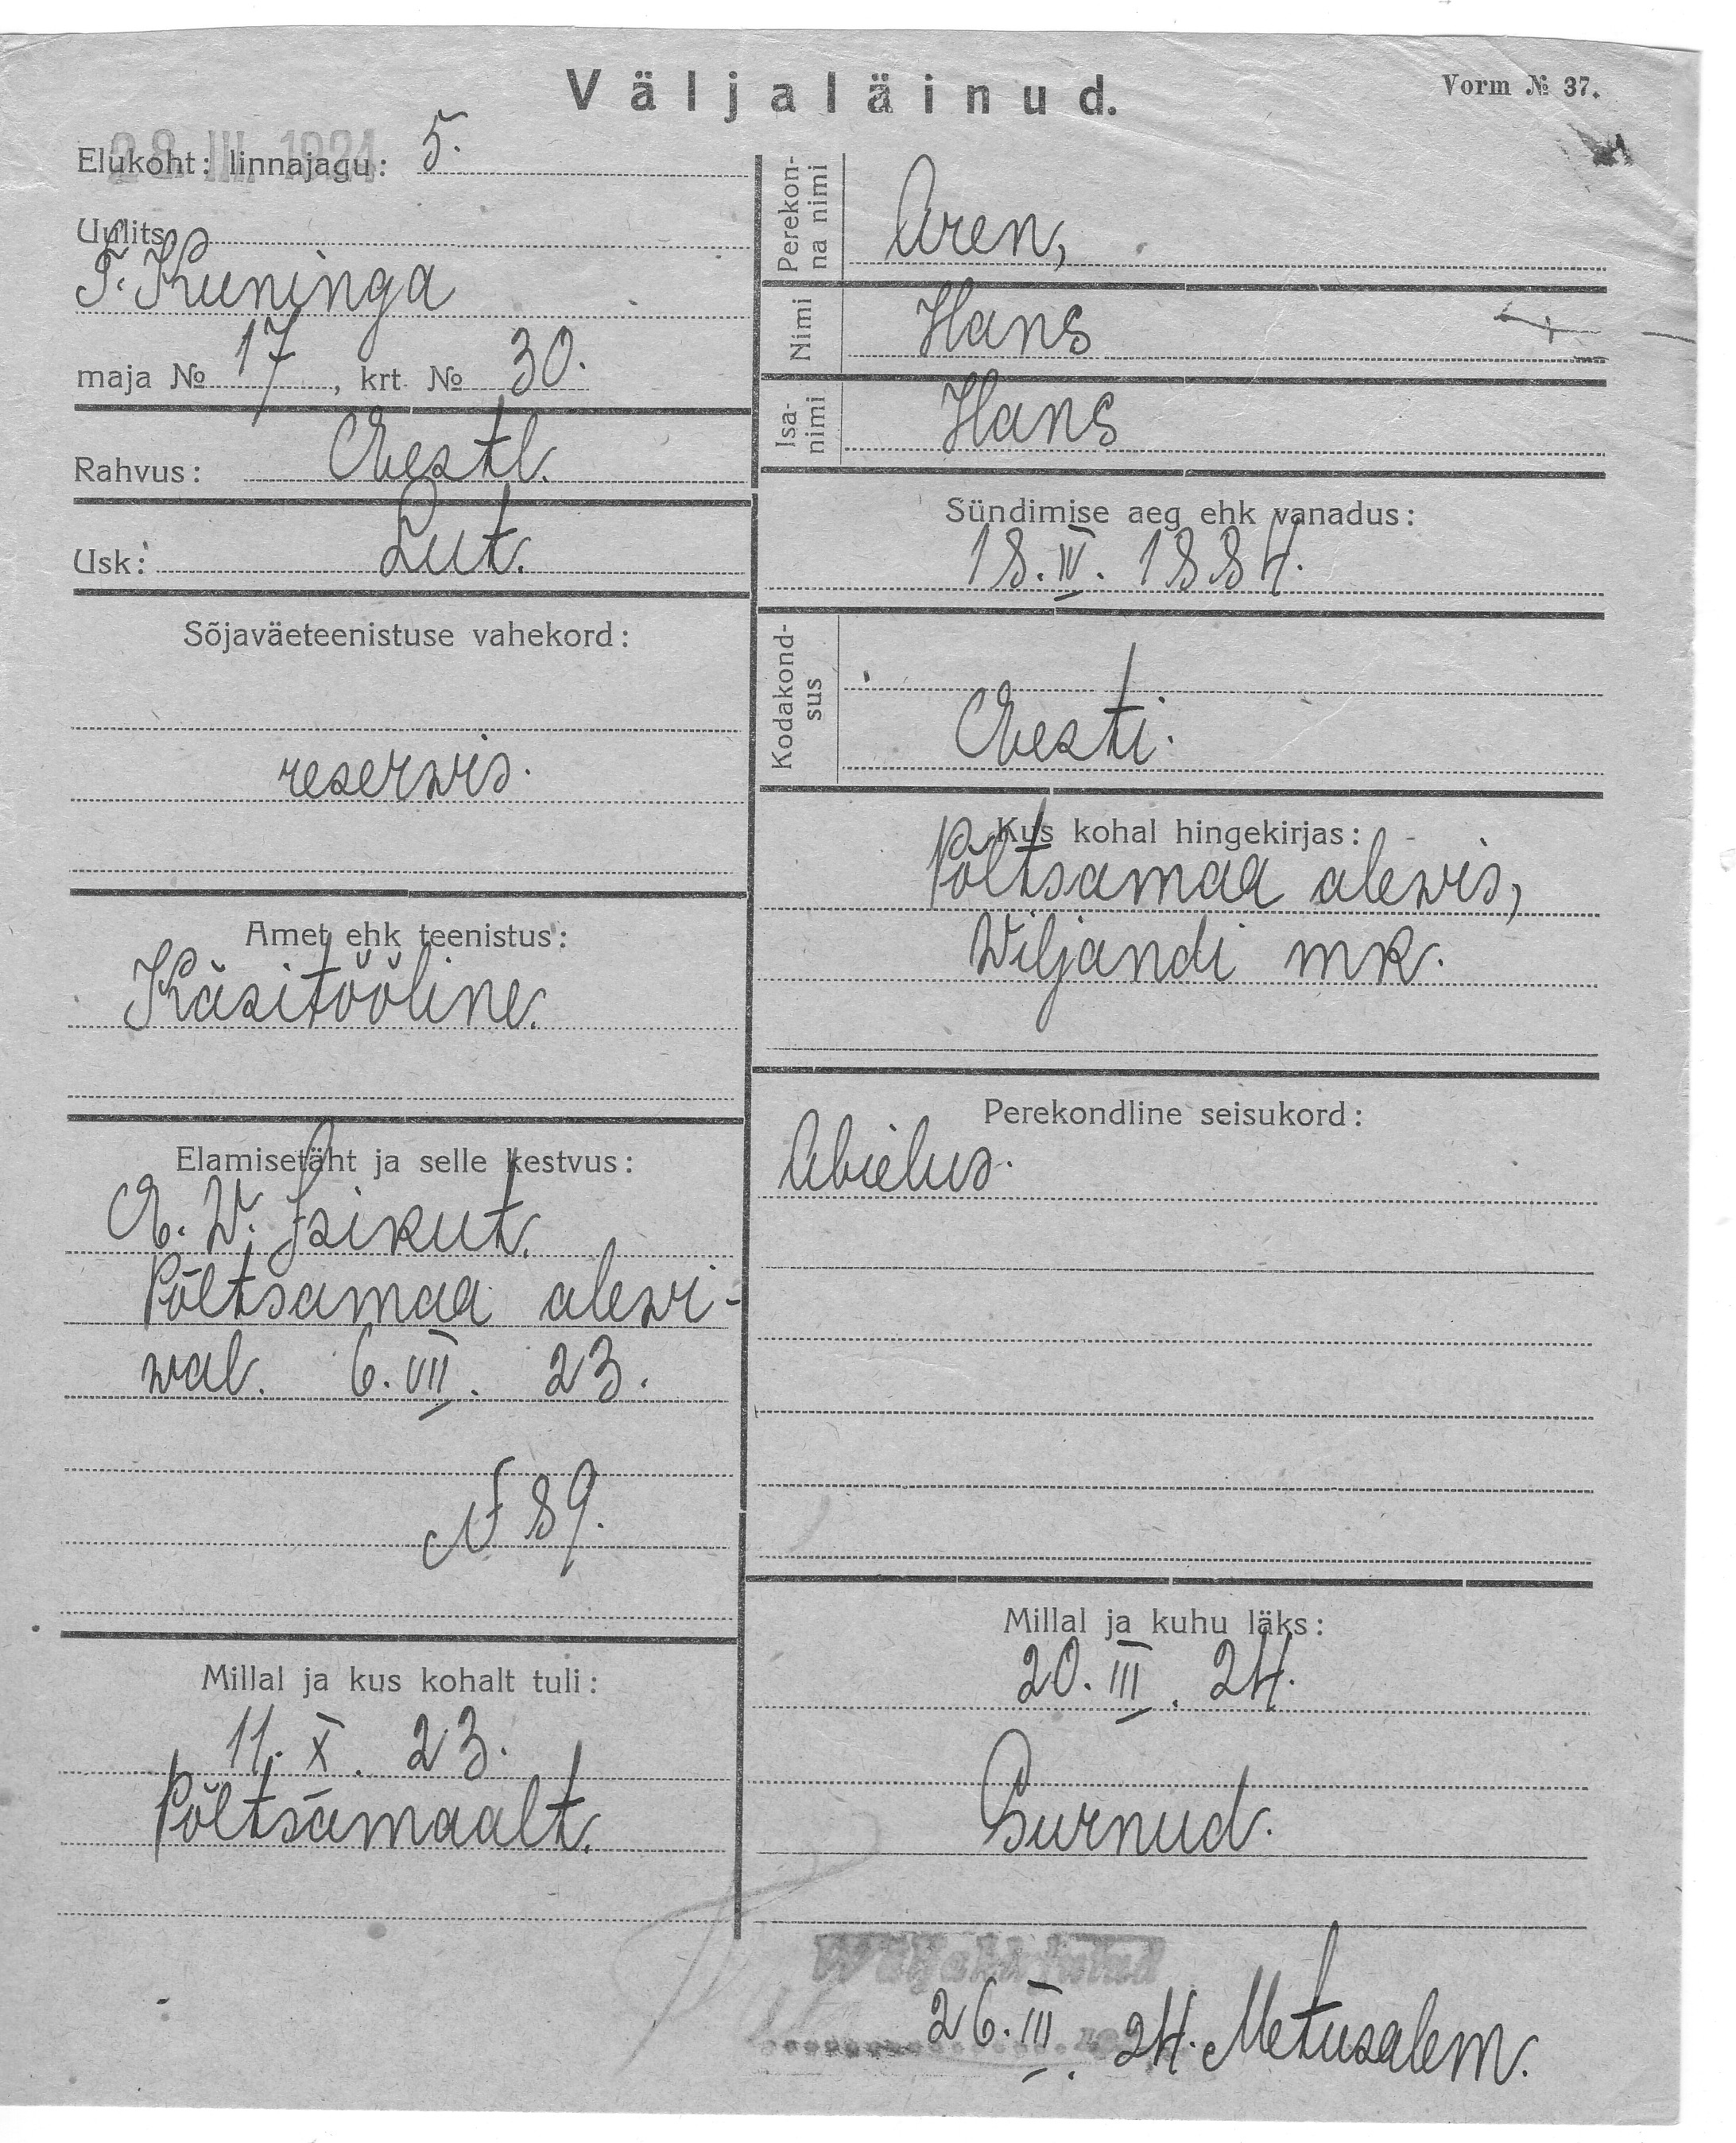 Väljaläinud.
Vorm № 37.
28. III. 1924
Elukoht: linnajagu: 5.
Uulits
T. Kuninga
maja № 17, krt. № 30.
Rahvus: Eestl.
Usk: Lut.
Sõjaväeteenistuse vahekord:
reserwis.
Amet ehk teenistus:
Käsitööline.
Elamisetäht ja selle kestvus:
E. W. Isikut.
Põltsamaa alewi-
wal. 6. VII. 23.
N 89.
Millal ja kus kohalt tuli:
11. X. 23.
Põltsamaalt.
Perekon-
na nimi
Aren,
Nimi
Hans
Isa-
nimi
Hans
Sündimise aeg ehk vanadus:
18. IV. 1884.
Kodakond-
sus
Eesti.
Kus kohal hingekirjas:
Põltsamaa alewis,
Wiljandi mk.
Perekondline seisukord:
Abielus.
Millal ja kuhu läks:
20. III. 24.
Surnud.
26. III. 24. Metusalem.